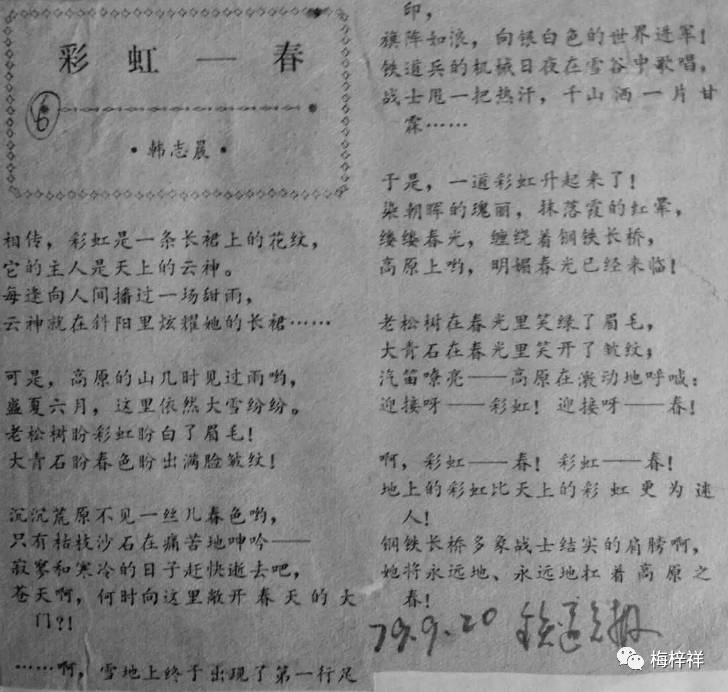 彩虹——春
6
·韩志晨·
相传，彩虹是一条长裙上的花纹，
它的主人是天上的云神。
每逢向人间播过一场甜雨，
云神就在斜阳里炫耀她的长裙……
可是，高原的山几时见过雨哟，
盛夏六月，这里依然大雪纷纷。
老松树盼彩虹盼白了眉毛！
大青石盼春色盼出满脸皱纹！
沉沉荒原不见一丝儿春色哟，
只有枯枝沙石在痛苦地呻吟——
寂寥和寒冷的日子赶快逝去吧，
苍天啊，何时向这里敞开春天的大
门？！
……啊，雪地上终于出现了第一行足
印，
旗阵如浪，向银白色的世界进军！
铁道兵的机械日夜在雪谷中歌唱，
战士甩一把热汗，千山洒一片甘
霖……
于是，一道彩虹升起来了！
染朝晖的瑰丽，抹落霞的红晕，
缕缕春光，缠绕着钢铁长桥，
高原上哟，明媚春光已经来临！
老松树在春光里笑绿了眉毛，
大青石在春光里笑开了皱纹；
汽笛嘹亮——高原在激动地呼喊：
迎接呀——彩虹！迎接呀——春！
啊，彩虹——春！彩虹——春！
地上的彩虹比天上的彩虹更为迷
人！
钢铁长桥多象战士结实的肩膀啊，
她将永远地、永远地扛着高原之
春！
79.9.20 铁道兵报
梅梓祥